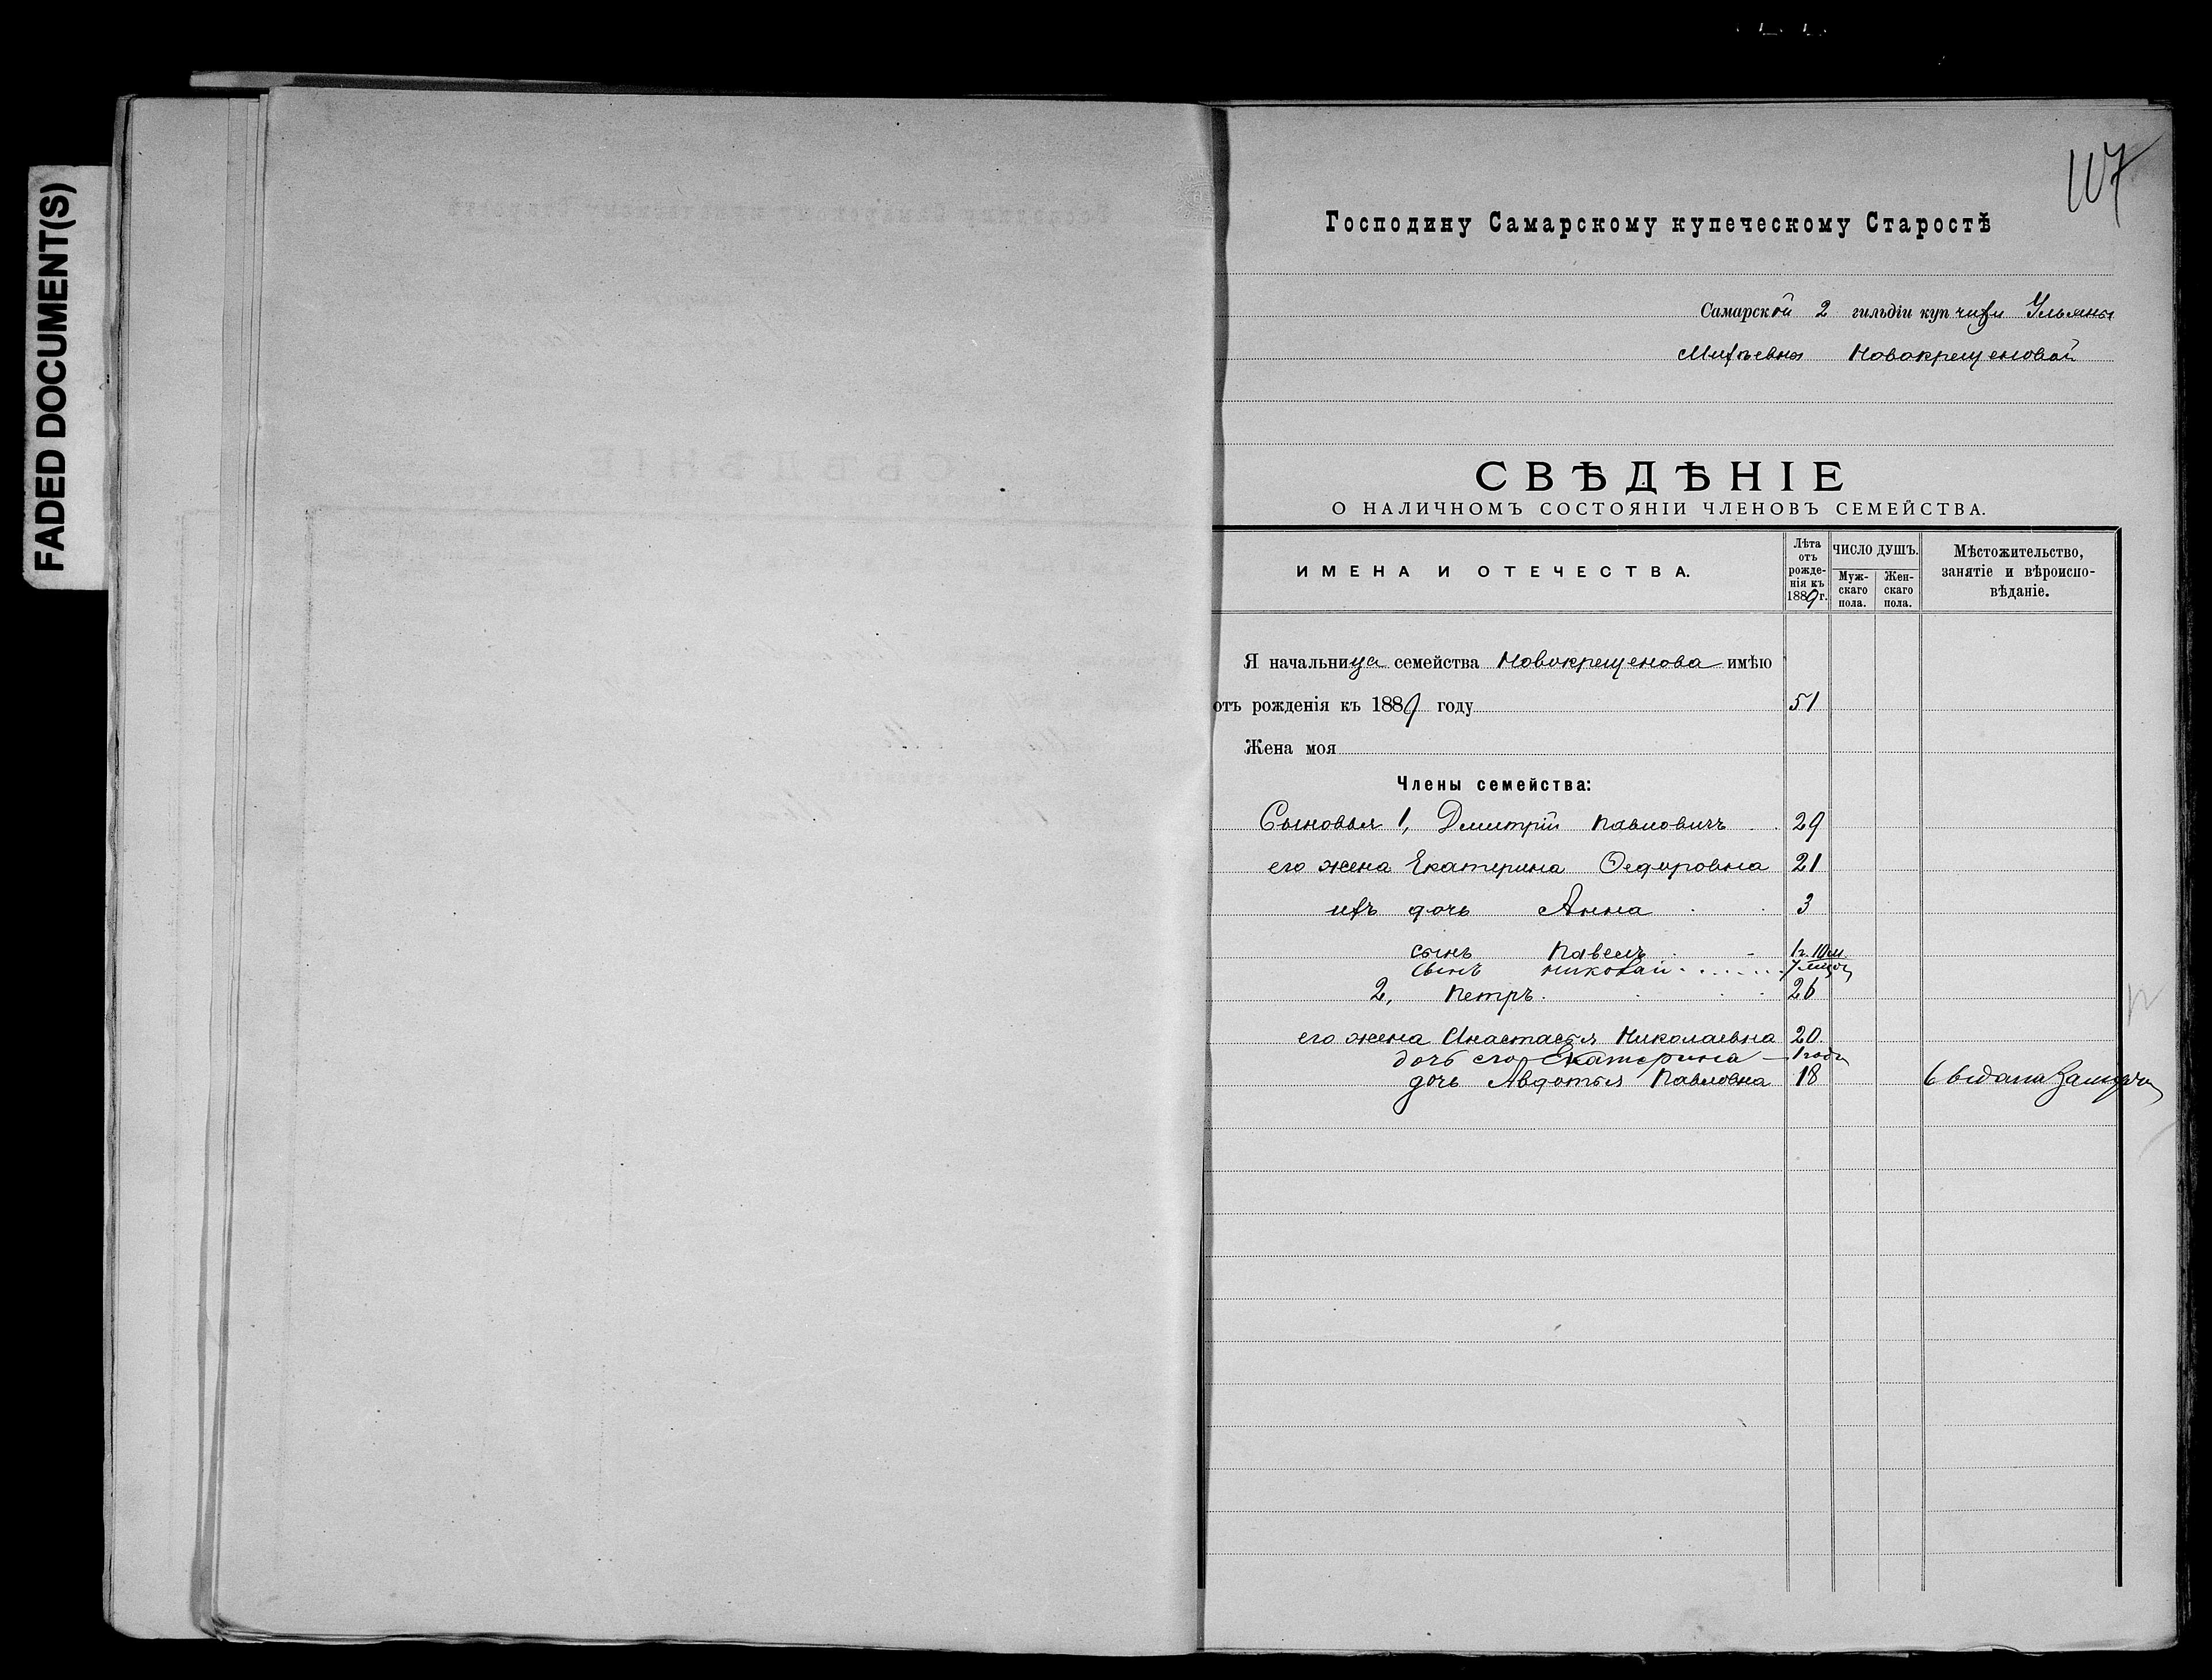 FADED DOCUMENT(S)
107
Господину Самарскому купеческому Старостѣ
Самарской 2 гильдіи купчихи Ульяны
Новокрещеновой
СВѢДѢНІЕ
О НАЛИЧНОМЪ СОСТОЯНІИ ЧЛЕНОВЪ СЕМЕЙСТВА.
ИМЕНА И ОТЕЧЕСТВА.
Лѣта отъ рожденія къ 1889 г.
ЧИСЛО ДУШЪ.
Мужскаго пола.
Женскаго пола.
Мѣстожительство, занятіе и вѣроисповѣданіе.
Я начальница семейства Новокрещенова имѣю
отъ рожденія къ 1889 году 51
Жена моя
Члены семейства:
Сыновья 1, Дмитрій Павловичъ 29
его жена Екатерина Ѳедоровна 21
ихъ дочь Анна 3
сынъ Павелъ 1 г. 10 м
сынъ Николай 7 мѣсяц
2, Петръ 26
его жена Анастасья Николаевна 20
дочь его Екатерина 1 года
дочь Авдотья Павловна 18 выдана замуж